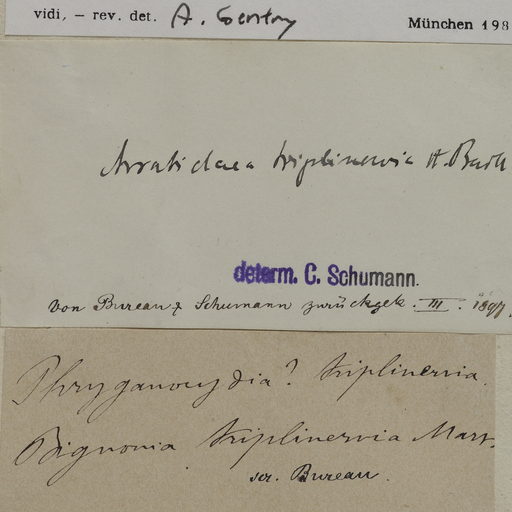 vidi, — rev. det. A. Gentry München 198
Arrabidaea triplinervia H. Baill
determ. C. Schumann.
von Bureau & Schumann zurückgek. III. 1897.
Phryganocydia? triplinervia.
Bignonia triplinervia Mart.
scr. Bureau.